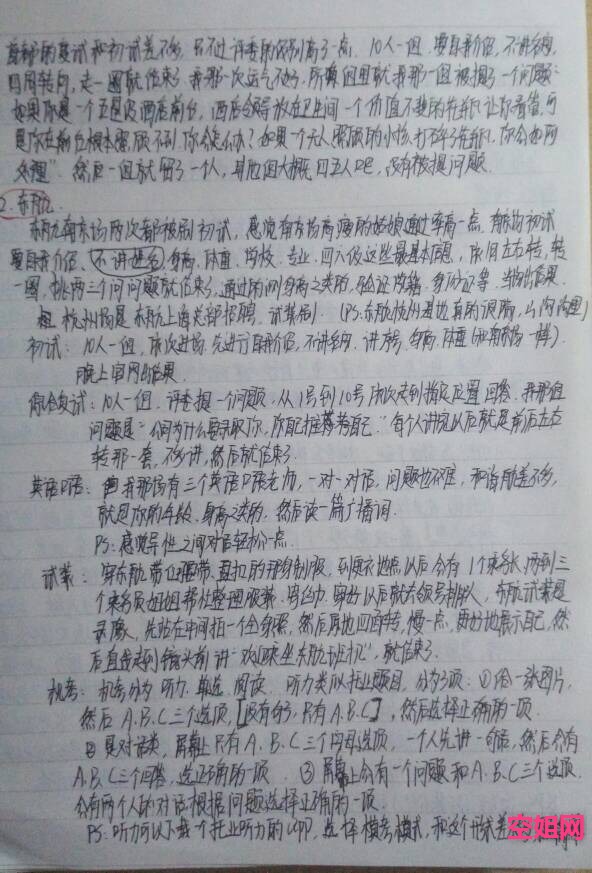 复试和初试差不多，只不过评委的级别高了一点。10人一组，要自我介绍，不讲学校，
四周转向，走一圈就结束了。我那一次运气不好，所有组里就我那一组被提了一个问题：
如果你是一个五星级酒店前台，酒店领导放在卫生间一个价值不斐的花瓶让你看管，可
是你在前台根本照顾不到，你会怎么办？如果一个无人照顾的小孩打碎了花瓶，你会如何
处理"。然后一组就留了一个人，其他组大概四五人吧，没有被提问题。
2.东航
东航南京场两次都被刷初试，感觉有有高度的姑娘通过率高一点。初试
要自我介绍，不讲姓名，身高、体重、学校、专业、四六级这些最基本信息，依旧左右转，转
一圈，挑两三个问问题就结束了，通过的测身高之类的，验证改签，身份证等，当场出结果。
杭州场是东航上海总部招聘，试装(PS:东航杭州基地真的很隋，)
初试：10人一组，依次进场，先进行自我介绍，不讲学校，讲序号、身高、体重(和南京场一样)。
晚上官网出结果。
综合复试：10人一组，评委提一个问题，从1号到10号依次走到指定位置回答。我那组
问题是"公司为什么要录取你，你自己推荐着自己。"每个人讲完以后就是前后左右
转那一套，不多讲，然后就结束了。
英语口语：我那场有三个英语口语老师，一对一对话，问题也不难，和海航差不多，
就问你的年龄、身高之类的，然后读一篇广播词。
PS:感觉异性之间对话轻松一点。
试装：穿东航带卫腰带、盘扣的那身制服，到更衣地点以后会有1个乘务长，两到三
个乘务员姐姐帮忙整理服装、穿好以后就去领号排队，东航试装是
录像，先站在中间拍一个全身照，然后原地四面转，慢一点，更好地展示自己，然
后直线走到镜头前讲"欢迎乘坐东航班机"，就结束了。
机考：机考分为听力、单选、阅读。听力类似托业题目，分为3项：①给一张图片，
然后A.B.C三个选项，[没有句子，只有A.B.C]，然后选择正确的一项。
②是对话类，屏幕上只有A、B、C三个字母选项，一个人先讲一句话，然后会有
A.B.C三个回答，选正确的一项。③屏幕上会有一个问题和A、B、C三个选项，
会有两个人的对话，根据问题选择正确的一项。
PS:听力可以下载个托业听力的APP，选择模考模式，和这个形式差
空姐网